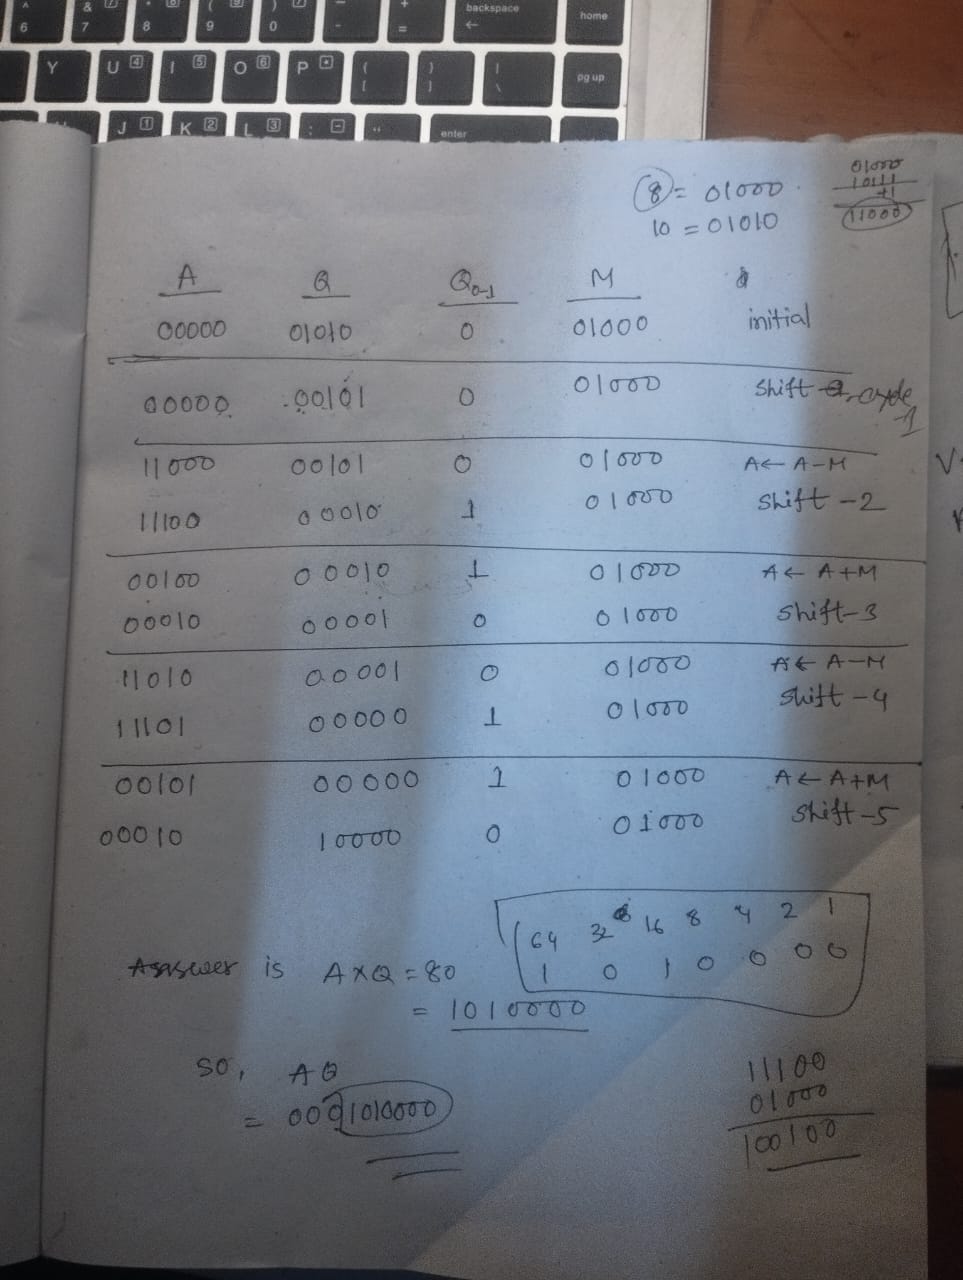 & 7 8 9 0 - + = backspace ← home
6
Y U 4 I 5 O 6 P * { [ } ] | \ pg up
J 1 K 2 L 3 : - " enter
8 = 01000
10 = 01010
01000
10111
+1
11000
A Q Q0-1 M
00000 01010 0 01000 initial
00000 00101 0 01000 shift cycle 1
11000 00101 0 01000 A ← A-M
11100 00010 1 01000 shift -2
00100 00010 1 01000 A ← A+M
00010 00001 0 01000 shift-3
11010 00001 0 01000 A ← A-M
11101 00000 1 01000 shift -4
00101 00000 1 01000 A ← A+M
00010 10000 0 01000 shift-5
64 32 16 8 4 2 1
1 0 1 0 0 0 0
is A×Q = 80
= 1010000
so, AQ
= 0001010000
11100
01000
100100